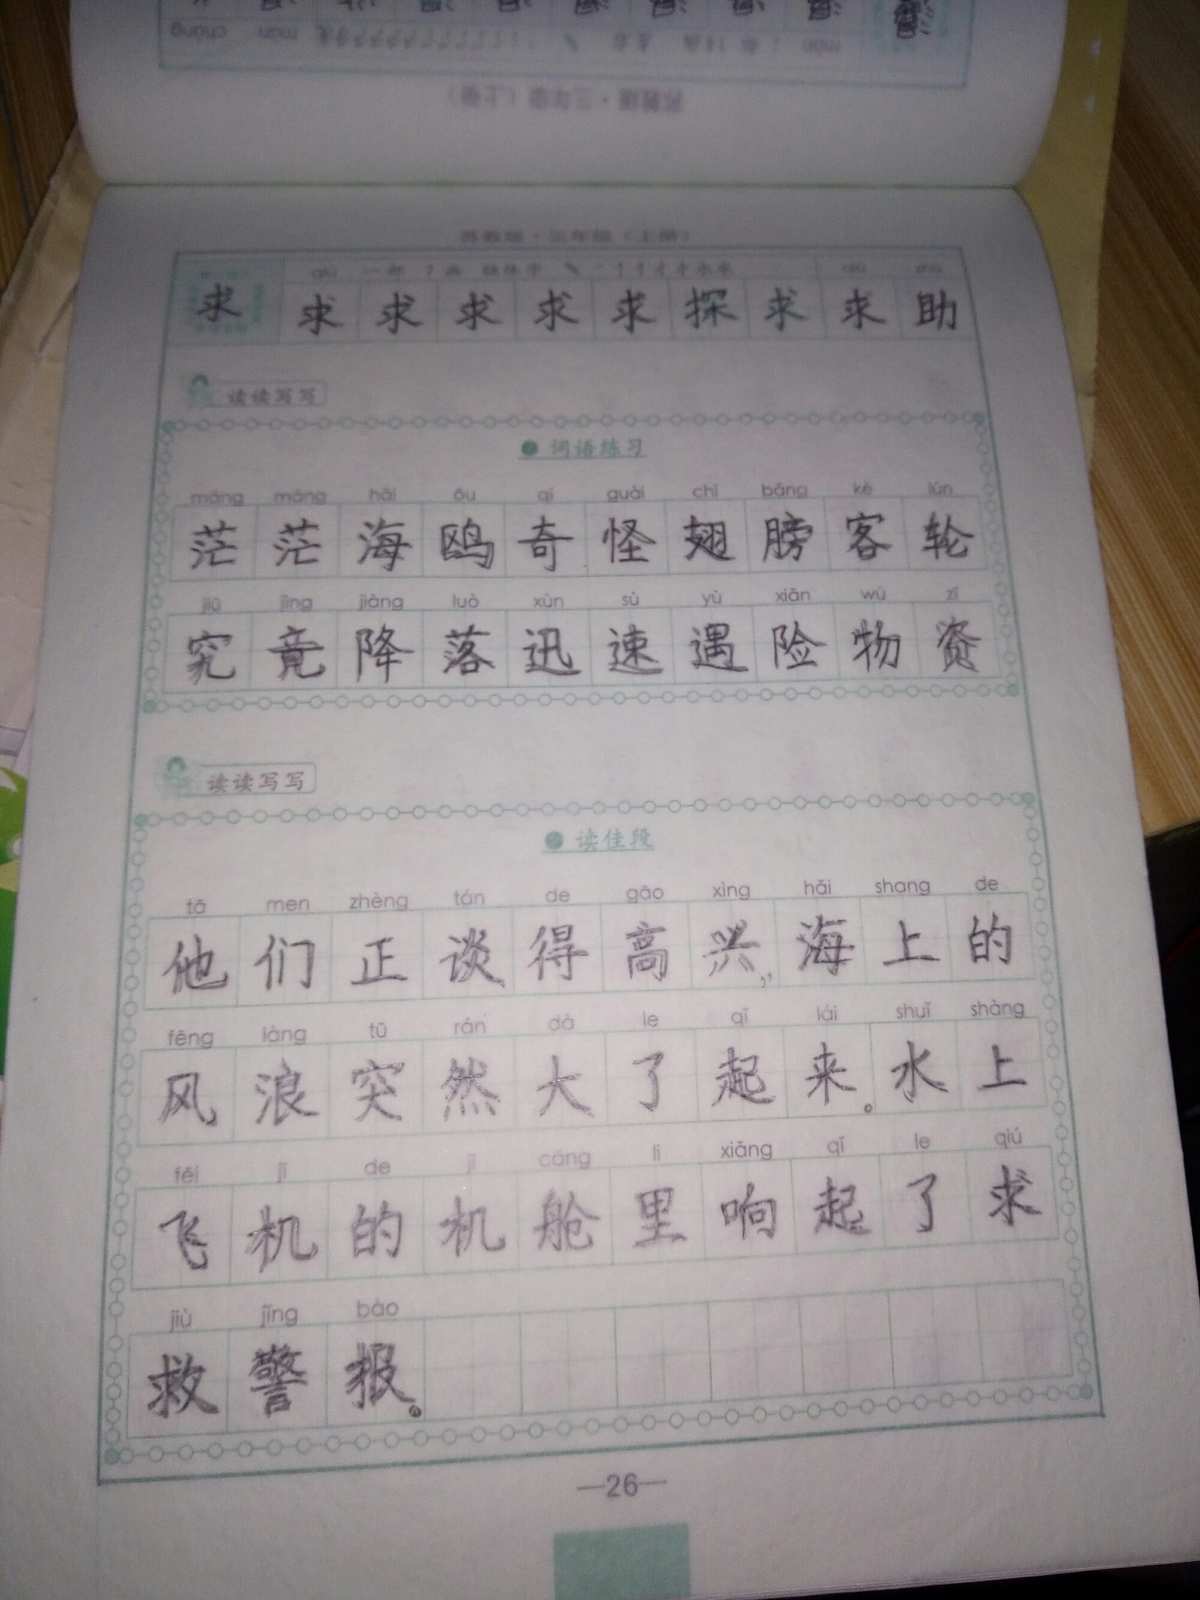 苏教版·三年级（上册）
求 求 求 求 求 求 探 求 求 助
读读写写
词语练习
máng máng hǎi ōu qí guài chì bǎng kè lún
茫 茫 海 鸥 奇 怪 翅 膀 客 轮
jiū jìng jiàng luò xùn sù yù xiǎn wù zī
究 竟 降 落 迅 速 遇 险 物 资
读读写写
读佳段
tā men zhèng tán de gāo xìng hǎi shang de
他 们 正 谈 得 高 兴， 海 上 的
fēng làng tū rán dà le qǐ lái shuǐ shàng
风 浪 突 然 大 了 起 来。 水 上
fēi jī de jī cāng li xiǎng qǐ le qiú
飞 机 的 机 舱 里 响 起 了 求
jiù jǐng bào
救 警 报。
—26—